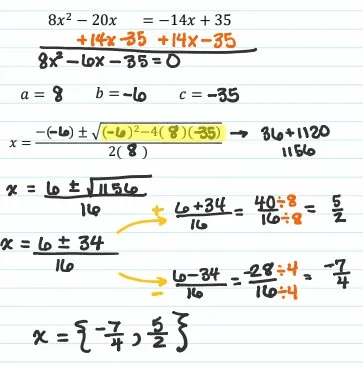 8x² − 20x = −14x + 35
+14x −35 +14x −35
8x² − 6x − 35 = 0
a = 8 b = −6 c = −35
x = −(−6) ± √(−6)² − 4( 8 )(−35) / 2( 8 ) → 36 + 1120
1156
x = 6 ± √1156 / 16
+ 6 + 34 / 16 = 40 ÷8 / 16 ÷8 = 5/2
x = 6 ± 34 / 16
− 6 − 34 / 16 = −28 ÷4 / 16 ÷4 = −7/4
x = { −7/4 , 5/2 }